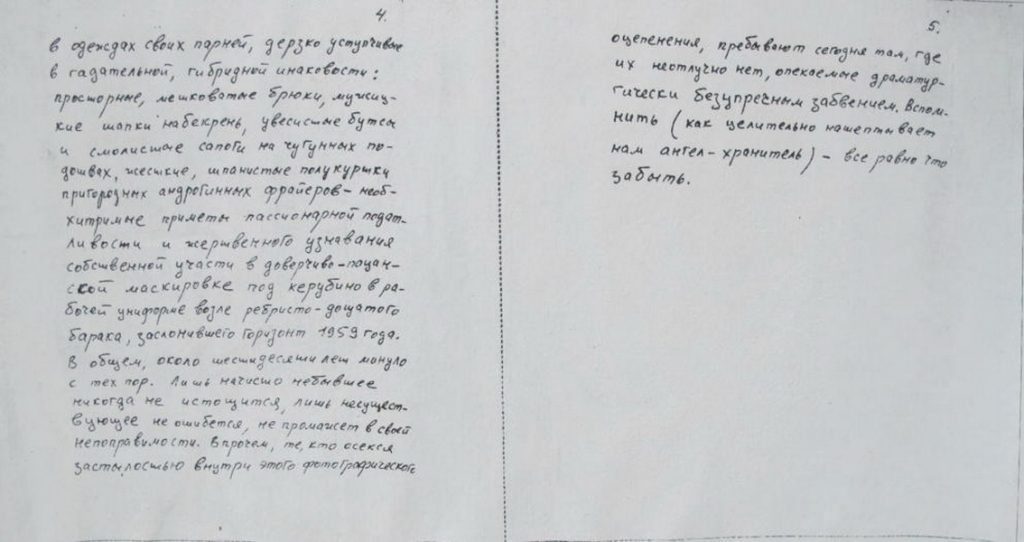 4.
в одеждах своих парней, дерзко уступчивые
в гадательной, гибридной инаковости:
просторные, мешковатые брюки, мужиц-
кие шапки набекрень, увесистые бутсы
и смолистые сапоги на чугунных по-
дошвах, жесткие, шпанистые полукуртки
пригородных андрогинных фраеров – необ-
хитримые приметы пассионарной подат-
ливости и жертвенного узнавания
собственной участи в доверчиво-пацан-
ской маскировке под керубино в ра-
бочей униформе возле ребристо-дощатого
барака, заслонившего горизонт 1959 года.
В общем, около шестидесяти лет минуло
с тех пор. Лишь начисто небывшее
никогда не истощится, лишь несущест-
вующее не ошибется, не промажет в своей
непоправимости. Впрочем, те, кто осекся
застылостью внутри этого фотографического
5.
оцепенения, пребывают сегодня там, где
их неотлучно нет, опекаемые драматур-
гически безупречным забвением. Вспом-
нить (как целительно нашептывает
нам ангел-хранитель) – все равно что
забыть.